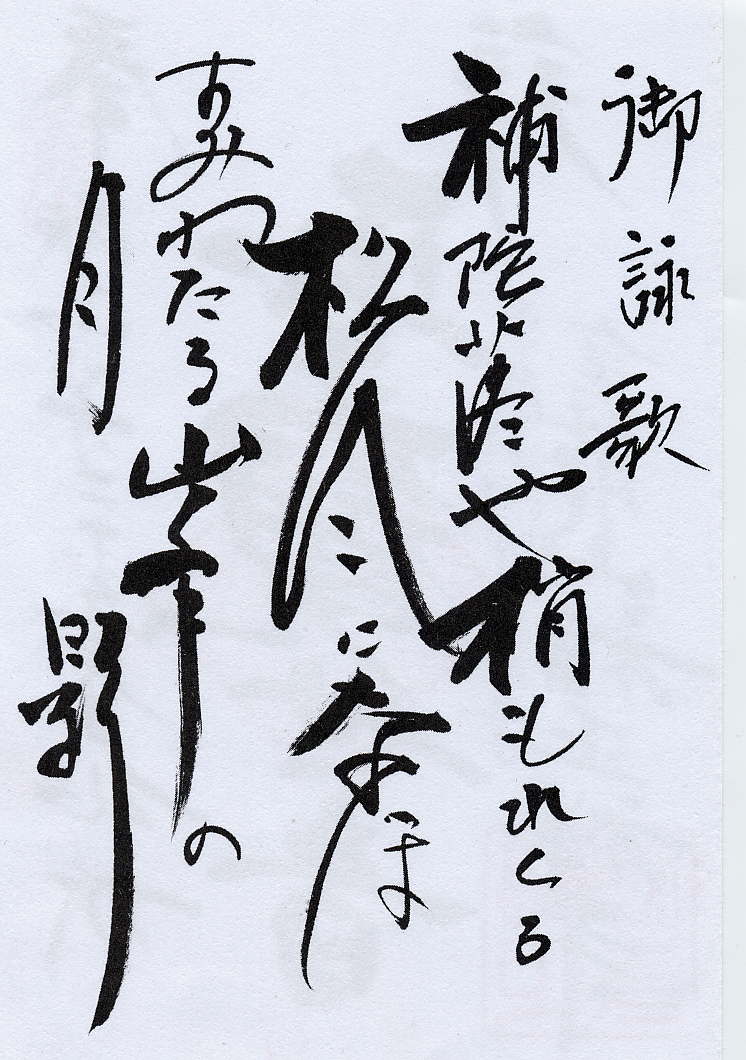 御詠歌
補陀落や梢もれくる
松風に奈ほ
すみわたる峯の
月影